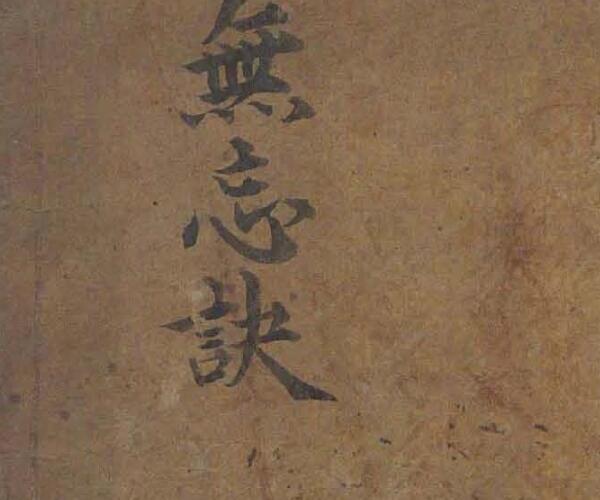 無忘訣